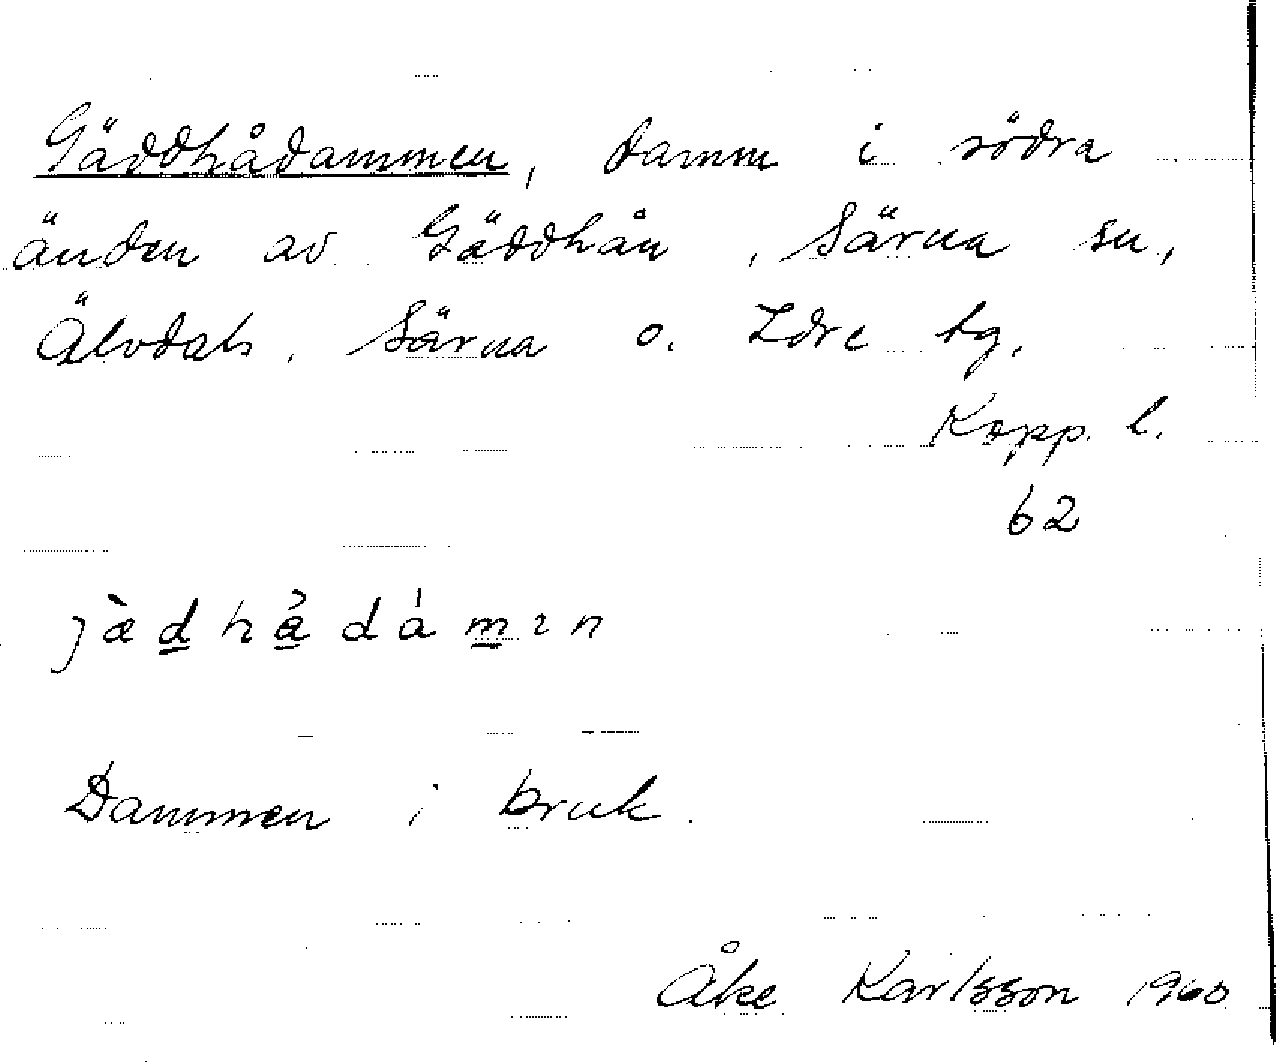 Gäddhådammen, damm i södra
änden av Gäddhån, Särna sn,
Älvdals, Särna o. Idre tg,
Kopp. l.
62
jàdhådámın
Dammen i bruk.
Åke Karlsson 1960